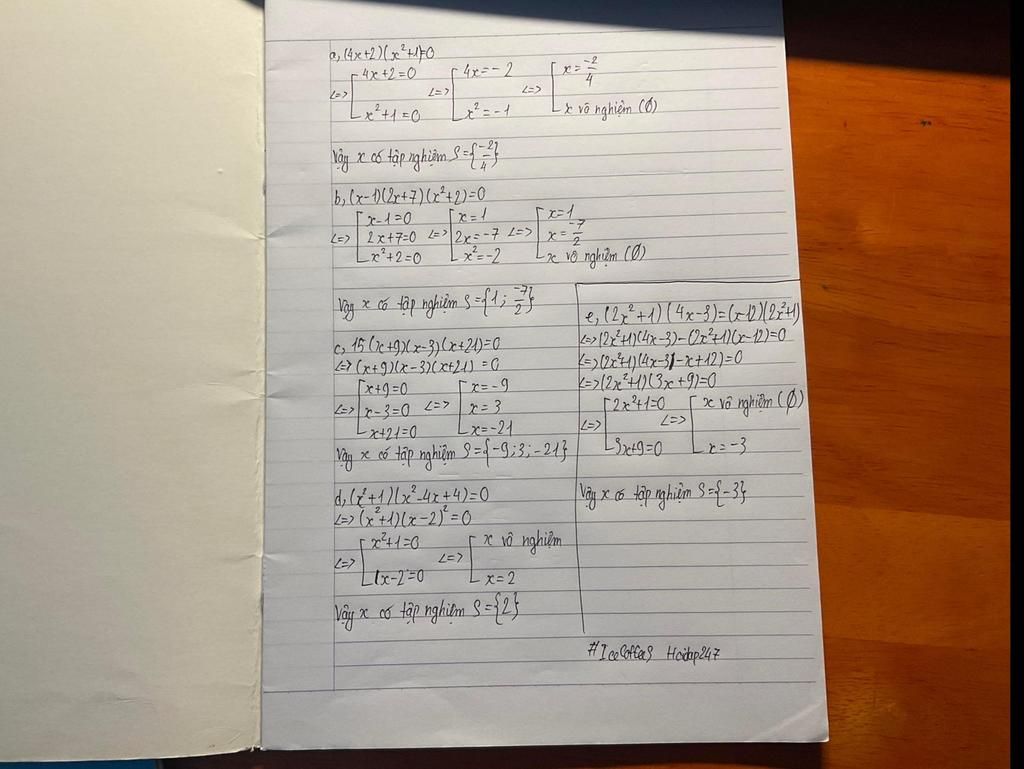 a, (4x+2)(x²+1)=0
<=> [4x+2=0 <=> [4x=-2 <=> [x=-2/4
x²+1=0 x²=-1 x vô nghiệm (Ø)
Vậy x có tập nghiệm S={-2/4}
b, (x-1)(2x+7)(x²+2)=0
<=> [x-1=0 <=> [x=1 <=> [x=1
2x+7=0 2x=-7 x=-7/2
x²+2=0 x²=-2 x vô nghiệm (Ø)
Vậy x có tập nghiệm S={1; -7/2}
c, 15(x+9)(x-3)(x+21)=0
<=> (x+9)(x-3)(x+21)=0
<=> [x+9=0 <=> [x=-9
x-3=0 x=3
x+21=0 x=-21
Vậy x có tập nghiệm S={-9;3;-21}
d, (x²+1)(x²-4x+4)=0
<=> (x²+1)(x-2)²=0
<=> [x²+1=0 <=> [x vô nghiệm
(x-2=0 x=2
Vậy x có tập nghiệm S={2}
e, (2x²+1)(4x-3)=(x-12)(2x²+1)
<=> (2x²+1)(4x-3)-(2x²+1)(x-12)=0
<=> (2x²+1)(4x-3-x+12)=0
<=> (2x²+1)(3x+9)=0
<=> [2x²+1=0 <=> [x vô nghiệm (Ø)
3x+9=0 x=-3
Vậy x có tập nghiệm S={-3}
Hoidap247